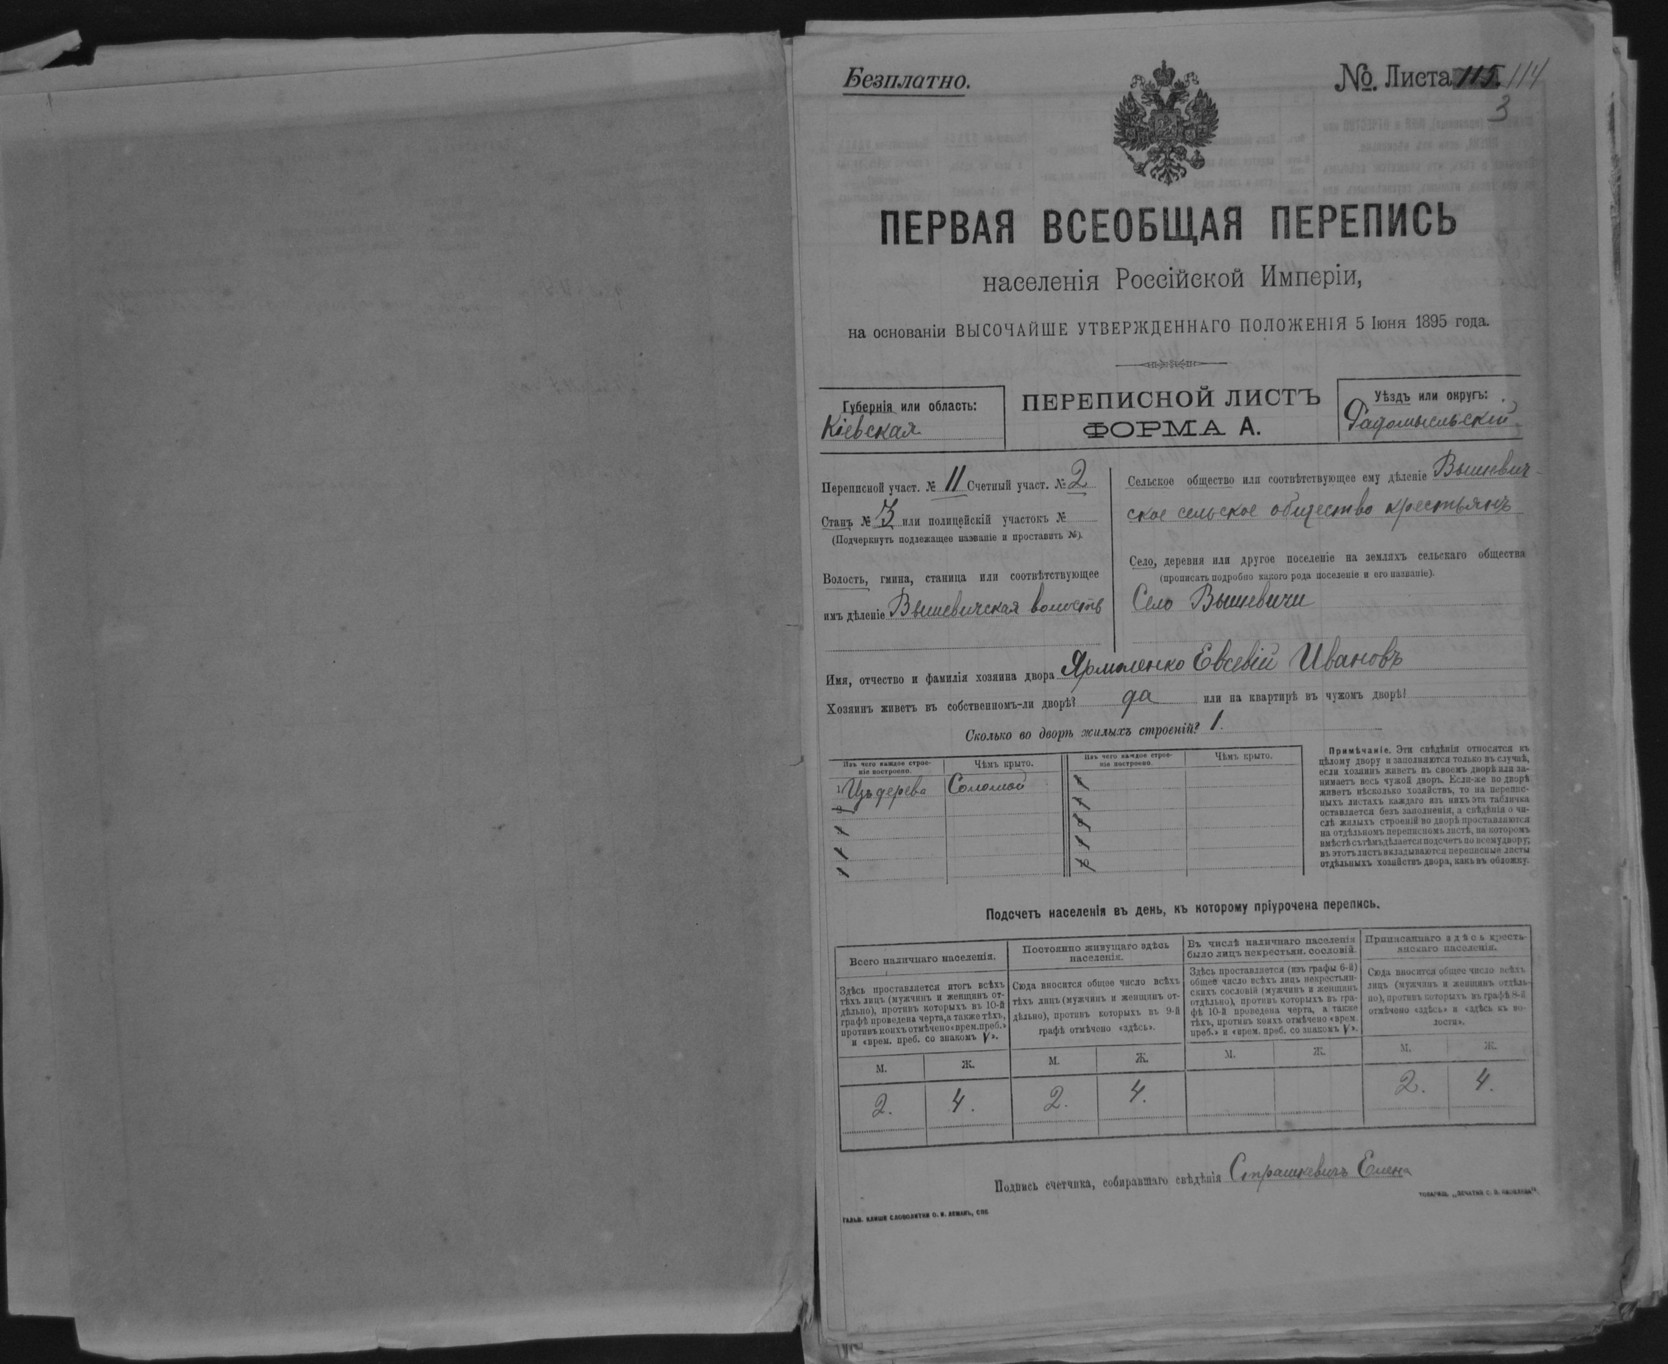 Безплатно.
№. Листа 115. 114
3
ПЕРВАЯ ВСЕОБЩАЯ ПЕРЕПИСЬ
населенія Россійской Имперіи,
на основаніи ВЫСОЧАЙШЕ УТВЕРЖДЕННАГО ПОЛОЖЕНІЯ 5 Іюня 1895 года.
Губернія или область:
Кіевская
ПЕРЕПИСНОЙ ЛИСТЪ
ФОРМА А.
Уѣздъ или округъ:
Радомысльскій
Переписной участ. № 11 Счетный участ. № 2
Станъ № 3 или полицейскій участокъ №
(Подчеркнуть подлежащее названіе и проставить №).
Волость, гмина, станица или соотвѣтствующее
имъ дѣленіе Вышевичская волость
Сельское общество или соотвѣтствующее ему дѣленіе Вышевич-
ское сельское общество крестьянъ
Село, деревня или другое поселеніе на земляхъ сельскаго общества
(прописать подробно какого рода поселеніе и его названіе).
Село Вышевичи
Имя, отчество и фамилія хозяина двора Ярмоленко Евсевій Ивановъ
Хозяинъ живетъ въ собственномъ-ли дворѣ? да или на квартирѣ въ чужомъ дворѣ?
Сколько во дворѣ жилыхъ строеній? 1.
Изъ чего каждое строе-
ніе построено.
Чѣмъ крыто.
1 Изъ дерева
Соломой
Изъ чего каждое строе-
ніе построено.
Чѣмъ крыто.
Примѣчаніе. Эти свѣдѣнія относятся къ
цѣлому двору и заполняются только въ случаѣ,
если хозяинъ живетъ въ своемъ дворѣ или за-
нимаетъ весь чужой дворъ. Если-же во дворѣ
живетъ нѣсколько хозяйствъ, то на перепис-
ныхъ листахъ каждаго изъ нихъ эта табличка
оставляется безъ заполненія, а свѣдѣнія о чи-
слѣ жилыхъ строеній во дворѣ проставляются
на отдѣльномъ переписномъ листѣ, на которомъ
вмѣстѣ съ тѣмъ дѣлается подсчетъ по всему двору;
въ этотъ листъ вкладываются переписные листы
отдѣльныхъ хозяйствъ двора, какъ въ обложку.
Подсчетъ населенія въ день, къ которому пріурочена перепись.
Всего наличнаго населенія.
Здѣсь проставляется итогъ всѣхъ
тѣхъ лицъ (мужчинъ и женщинъ от-
дѣльно), противъ которыхъ въ 10-й
графѣ проведена черта, а также тѣхъ,
противъ коихъ отмѣчено «врем. преб.»
и «врем. преб. со знакомъ V».
М. Ж.
2. 4.
Постоянно живущаго здѣсь
населенія.
Сюда вносится общее число всѣхъ
тѣхъ лицъ (мужчинъ и женщинъ от-
дѣльно), противъ которыхъ въ 9-й
графѣ отмѣчено «здѣсь».
М. Ж.
2. 4.
Въ числѣ наличнаго населенія
было лицъ некрестьян. сословій.
Здѣсь проставляется (изъ графы 6-й)
общее число всѣхъ лицъ некрестьян-
скихъ сословій (мужчинъ и женщинъ
отдѣльно), противъ которыхъ въ гра-
фѣ 10-й проведена черта, а также
тѣхъ, противъ коихъ отмѣчено «врем.
преб.» и «врем. преб. со знакомъ V».
М. Ж.
Приписаннаго здѣсь кресть-
янскаго населенія.
Сюда вносится общее число всѣхъ
лицъ (мужчинъ и женщинъ отдѣль-
но), противъ которыхъ въ графѣ 8-й
отмѣчено «здѣсь» и «здѣсь въ во-
лости».
М. Ж.
2. 4.
Подпись счетчика, собиравшаго свѣдѣнія Страшкевичъ Елена
ГАЛЬВ. КЛИШЕ СЛОВОЛИТНИ О. И. ЛЕМАНЪ, СПБ.
ТОВАРИЩ. „ПЕЧАТНЯ С. П. ЯКОВЛЕВА“.